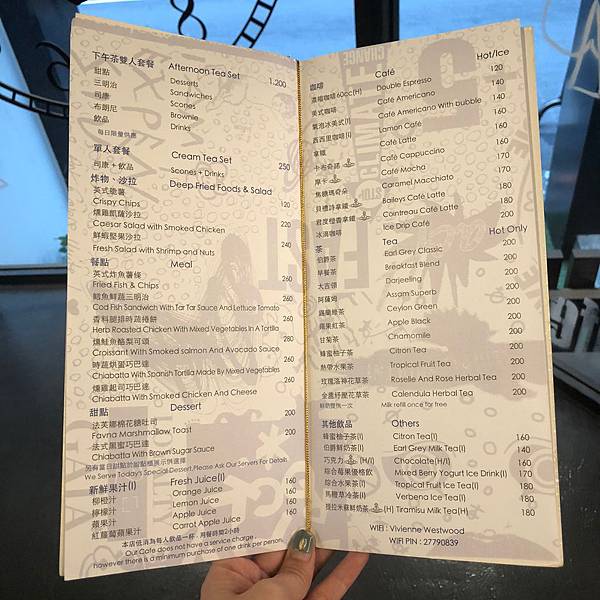 下午茶雙人套餐 Afternoon Tea Set 1,200
甜點 Desserts
三明治 Sandwiches
司康 Scones
布朗尼 Brownie
飲品 Drinks
每日限量供應
單人套餐 Cream Tea Set 250
司康+飲品 Scones + Drinks
炸物、沙拉 Deep Fried Foods & Salad
英式脆薯 120
Crispy Chips
燻雞凱薩沙拉 220
Caesar Salad with Smoked Chicken
鮮蝦堅果沙拉 240
Fresh Salad with Shrimp and Nuts
餐點 Meal
英式炸魚薯條 260
Fried Fish & Chips
鱈魚鮮蔬三明治 260
Cod Fish Sandwich With Tar Tar Sauce And Lettuce Tomato
香料腿排時蔬捲餅 260
Herb Roasted Chicken With Mixed Vegetables In A Tortilla
燻鮭魚酪梨可頌 280
Croissant With Smoked salmon And Avocado Sauce
時蔬烘蛋巧巴達 260
Chiabatta With Spanish Tortilla Made By Mixed Vegetables
燻雞起司巧巴達 260
Chiabatta With Smoked Chicken And Cheese
甜點 Dessert
法芙娜棉花糖吐司 200
Favna Marshmallow Toast
法式黑蜜巧巴達 200
Chiabatta With Brown Sugar Sauce
另有當日甜點於甜點櫃展示供選擇
We Serve Todays Special Dessert,Please Ask Our Servers For Details
新鮮果汁(I) Fresh Juice(I)
柳橙汁 Orange Juice 160
檸檬汁 Lemon Juice 160
蘋果汁 Apple Juice 160
紅蘿蔔蘋果汁 Carrot Apple Juice 160
本店低消為每人飲品一杯，用餐時間2小時
Our Cafe does not have a service charge,
however there is a minimum purchase of one drink per person.
咖啡 Café Hot/Ice
濃縮咖啡60cc(H) Double Espresso 120
美式咖啡 Café Americano 140
氣泡冰美式(I) Café Americano With bubble 160
西西里咖啡(I) Lamon Café 160
拿鐵 Café Latte 160
卡布奇諾 Café Cappuccino 160
摩卡 Café Mocha 170
焦糖瑪奇朵 Caramel Macchiato 170
貝禮詩拿鐵 Baileys Café Latte 180
君度橙香拿鐵 Cointreau Café Latte 180
冰滴咖啡 Ice Drip Café 200
茶 Tea Hot Only
伯爵茶 Earl Grey Classic 200
早餐茶 Breakfast Blend 200
大吉嶺 Darjeeling 200
阿薩姆 Assam Superb 200
錫蘭綠茶 Ceylon Green 200
蘋果紅茶 Apple Black 200
甘菊茶 Chamomile 200
蜂蜜柚子茶 Citron Tea 200
熱帶水果茶 Tropical Fruit Tea 200
玫瑰洛神花草茶 Roselle And Rose Herbal Tea 200
金盞紓壓花草茶 Calendula Herbal Tea 200
Milk refill once for free
其他飲品 Others
蜂蜜柚子茶(I) Citron Tea(I) 160
伯爵鮮奶茶(I) Earl Grey Milk Tea(I) 140
巧克力 (H/I) Chocolate(H/I) 160
綜合莓果優格飲 Mixed Berry Yogurt Ice Drink(I) 170
綜合水果茶(I) Tropical Fruit Ice Tea(I) 180
馬鞭草冷茶(I) Verbena Ice Tea(I) 180
提拉米蘇鮮奶茶 (H) Tiramisu Milk Tea(H) 180
WIFI : Vivienne Westwood
WIFI PIN : 27790839